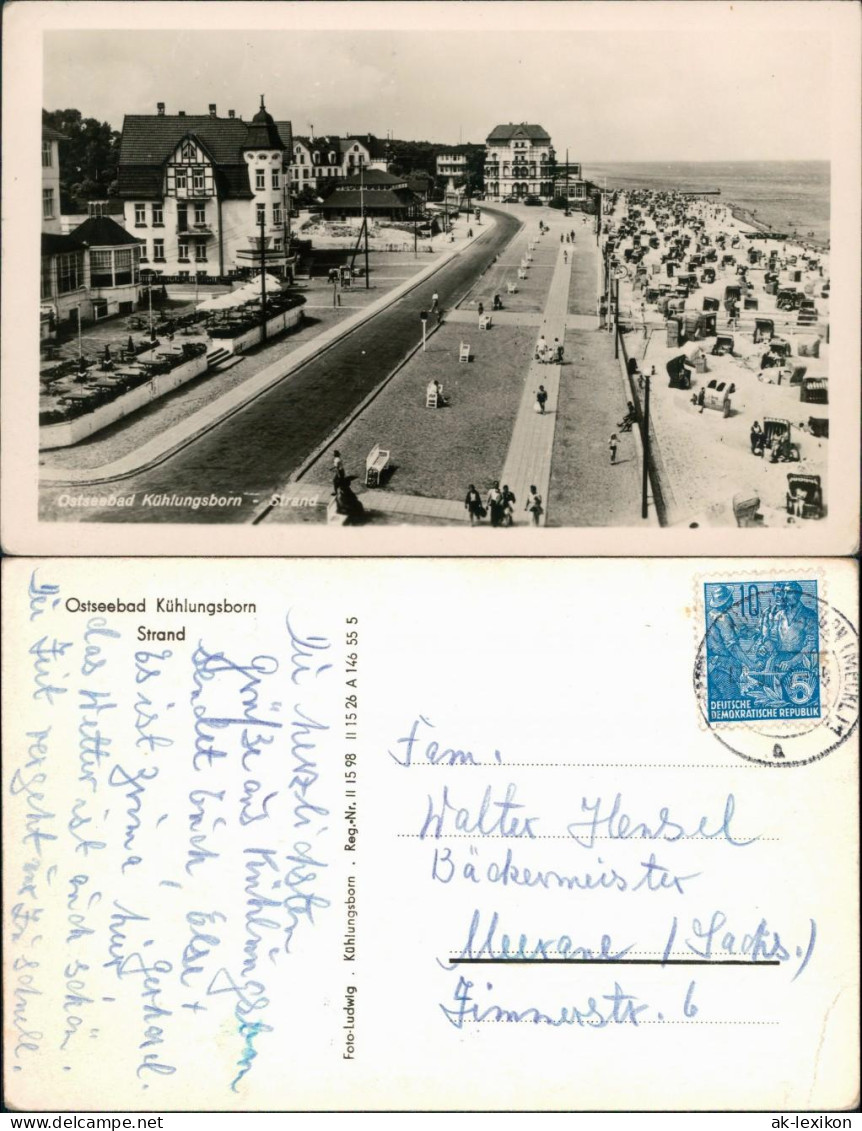 Ostseebad Kühlungsborn - Strand
Ostseebad Kühlungsborn
Strand
Die herzlichsten
Grüße aus Kühlungsborn
sendet Euch, Else +
Gerhard.
Es ist prima hier!
das Wetter ist auch schön.
Die Zeit vergeht nur zu schnell.
Foto-Ludwig . Kühlungsborn . Reg.-Nr. II 15 98 II 15 26 A 146 55 5
10
5
DEUTSCHE
DEMOKRATISCHE REPUBLIK
(MECKL)1
a
Fam.
Walter Hensel
Bäckermeister
Meerane / (Sachs.)
Zimmerstr. 6
Delcampe.net
ak-lexikon